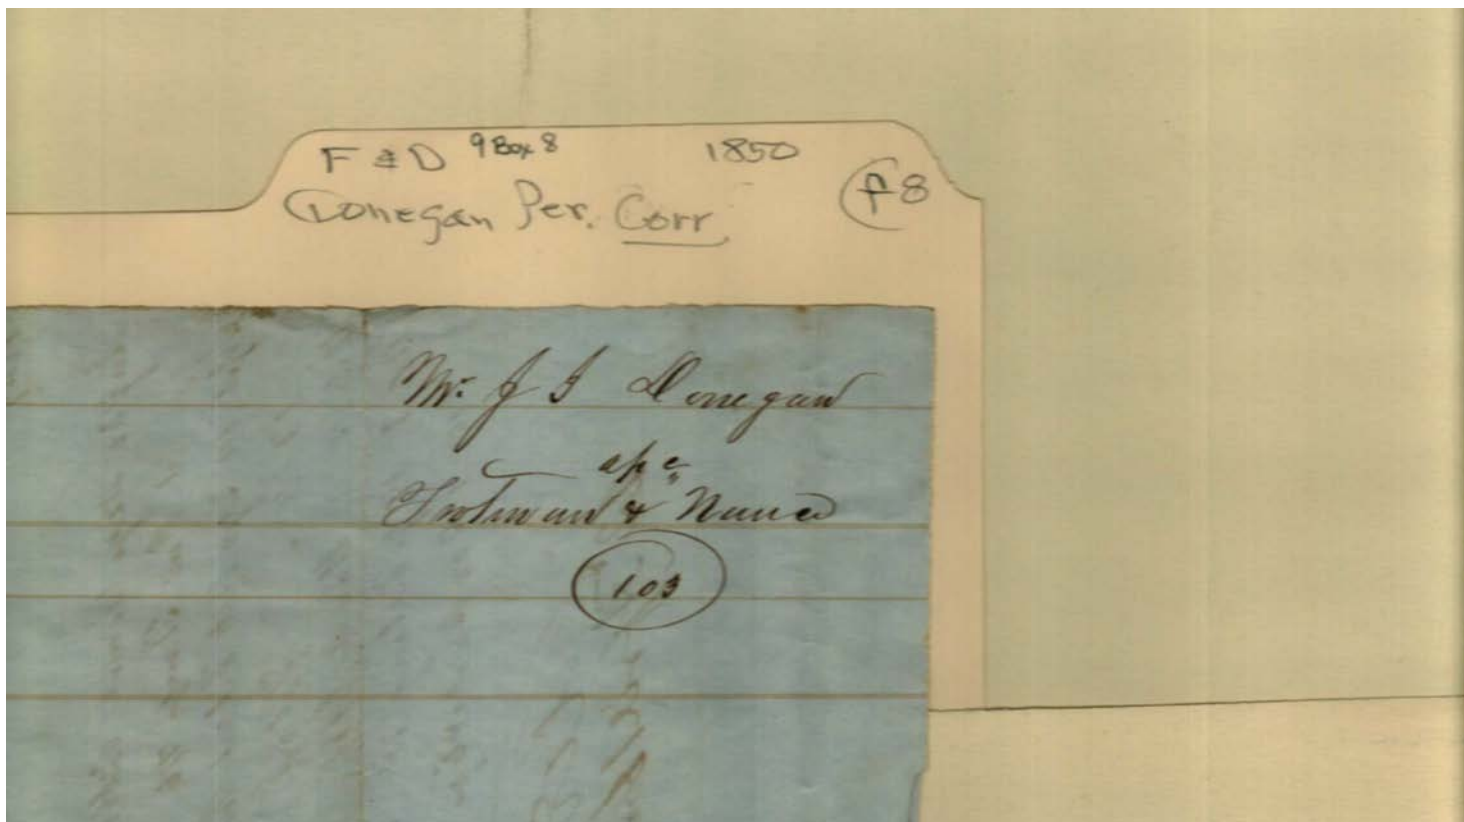 F & D 9 Box 8 1850
Donegan Per. Corr f8
Mr. J J Donegan
a/c
Trotman & Nance
103